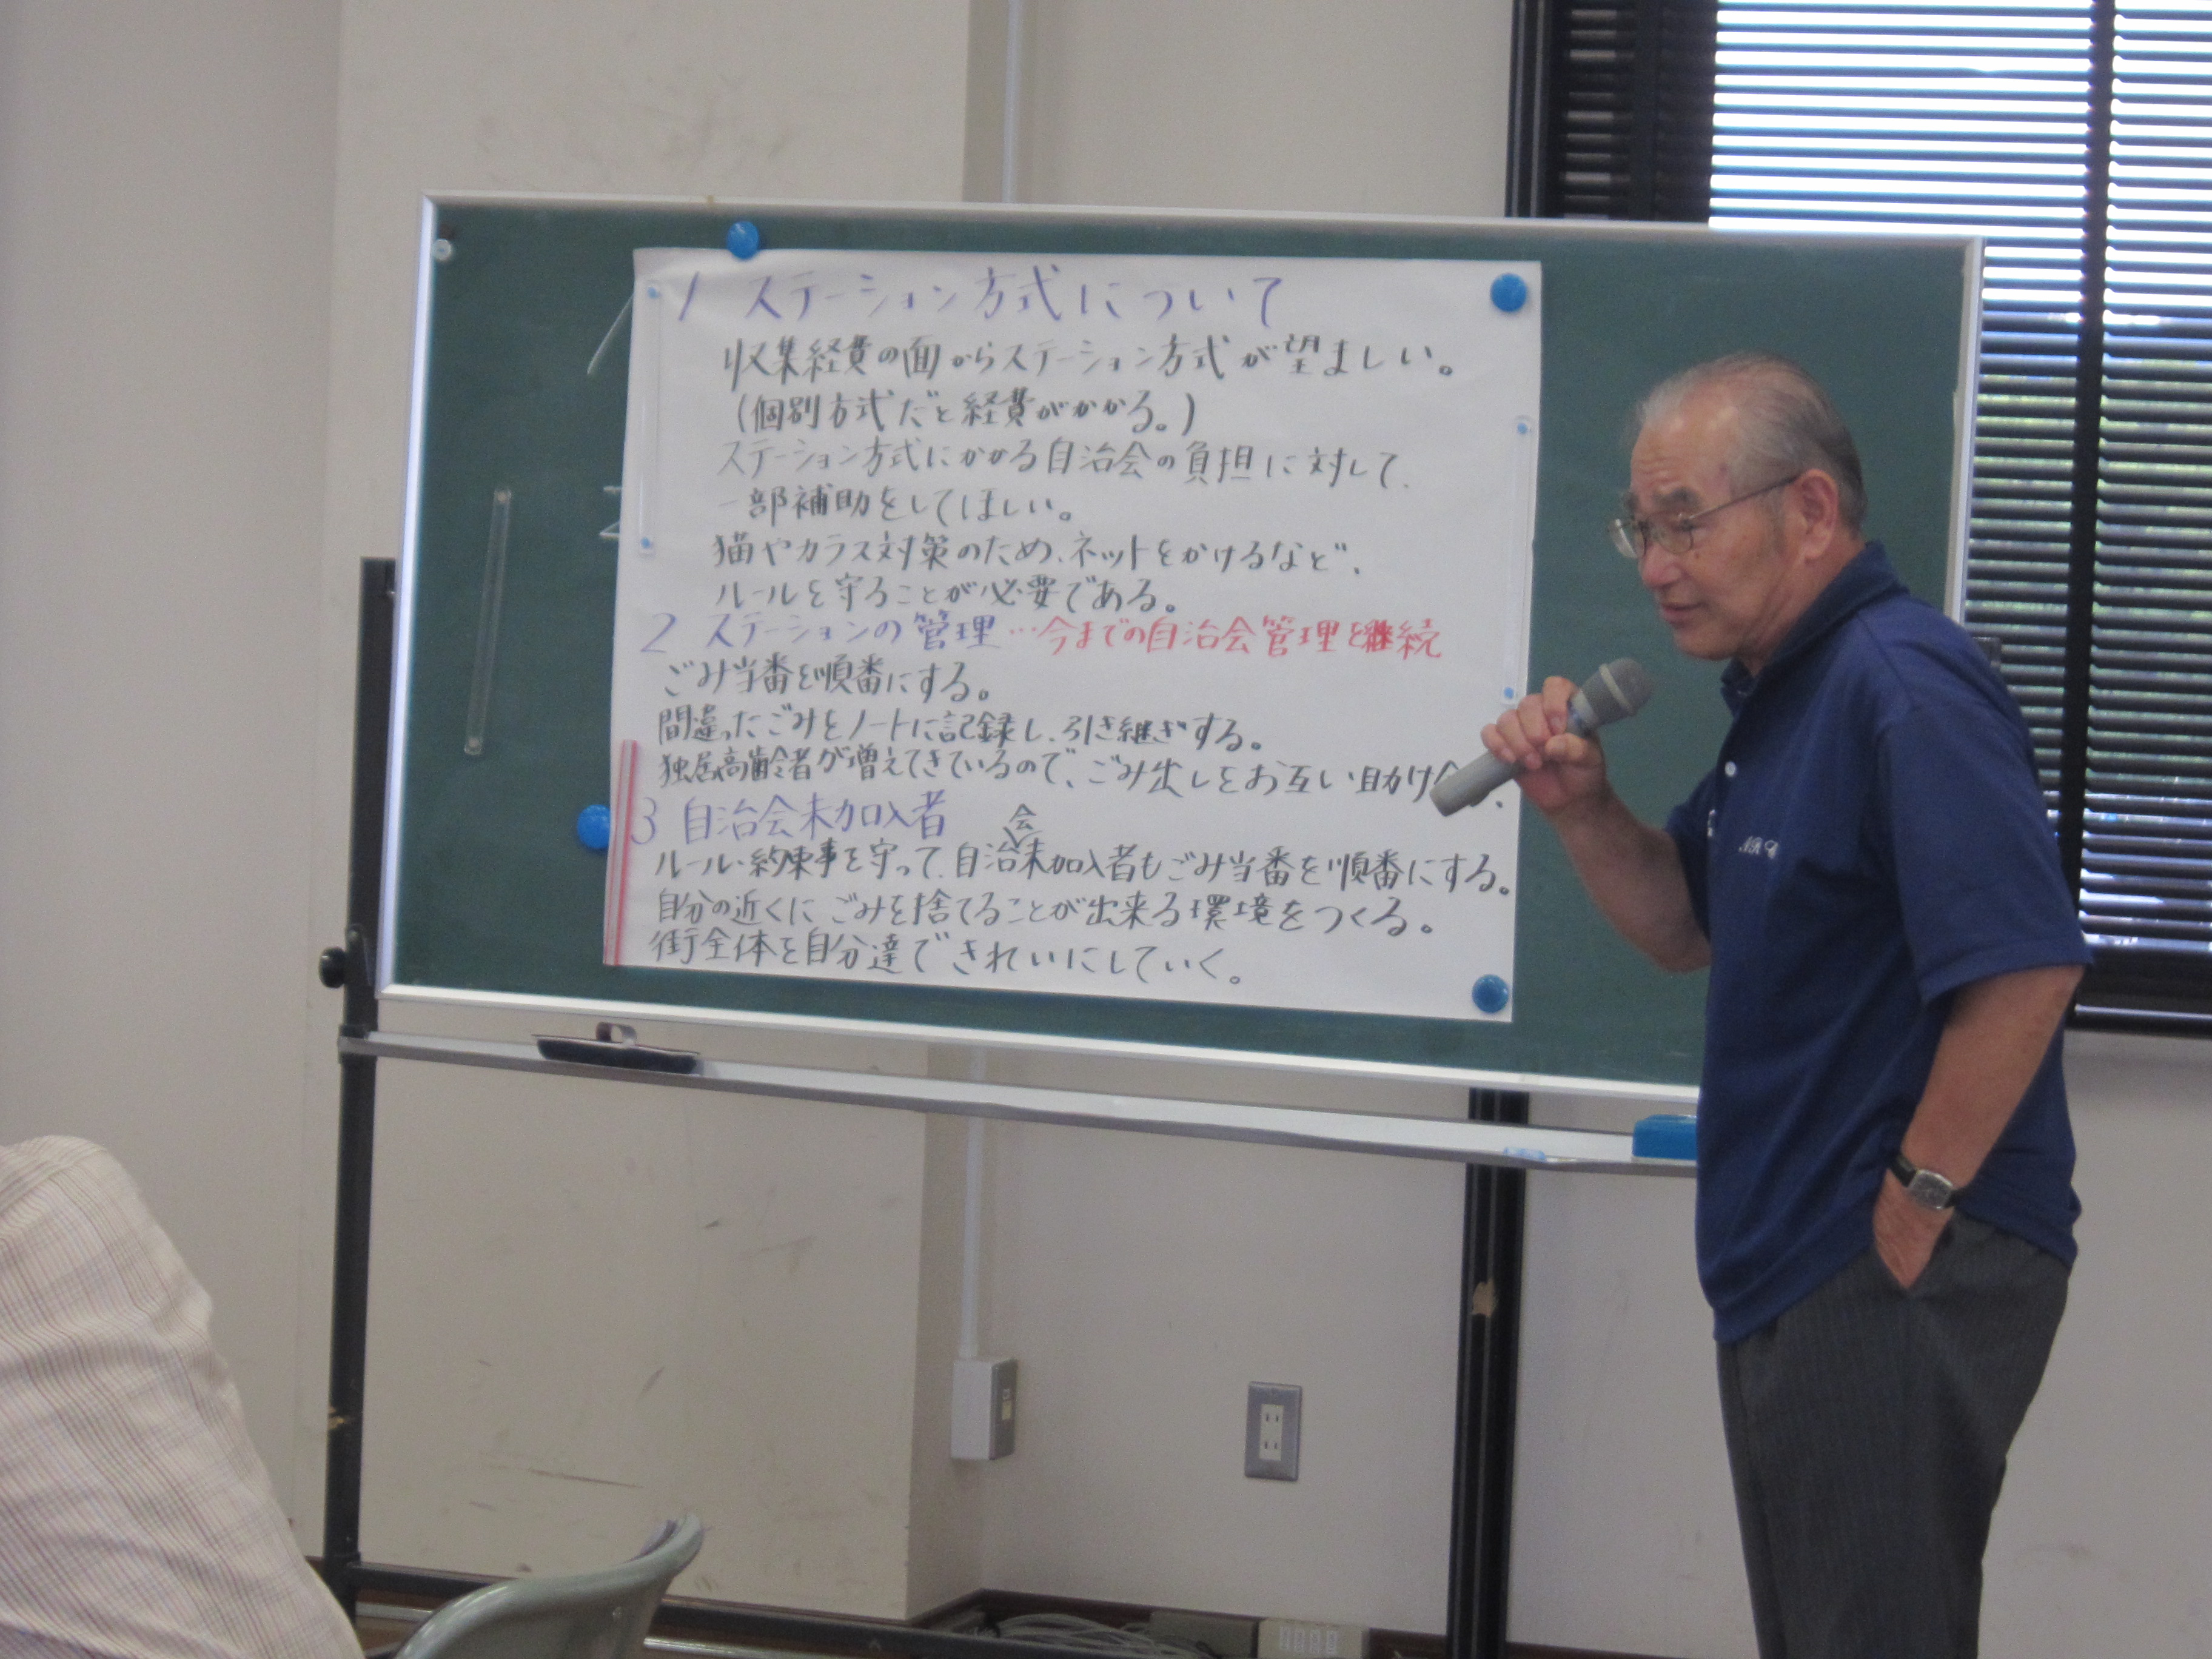 1 ステーション方式について
収集経費の面からステーション方式が望ましい。
(個別方式だと経費がかかる。)
ステーション方式にかかる自治会の負担に対して、
一部補助をしてほしい。
猫やカラス対策のため、ネットをかけるなど、
ルールを守ることが必要である。
2 ステーションの管理…今までの自治会管理を継続
ごみ当番を順番にする。
間違ったごみをノートに記録し、引き継ぎする。
独居高齢者が増えてきているので、ごみ出しをお互い助け合
3 自治会未加入者
ルール・約束事を守って、自治会未加入者もごみ当番を順番にする。
自分の近くにごみを捨てることが出来る環境をつくる。
街全体を自分達できれいにしていく。